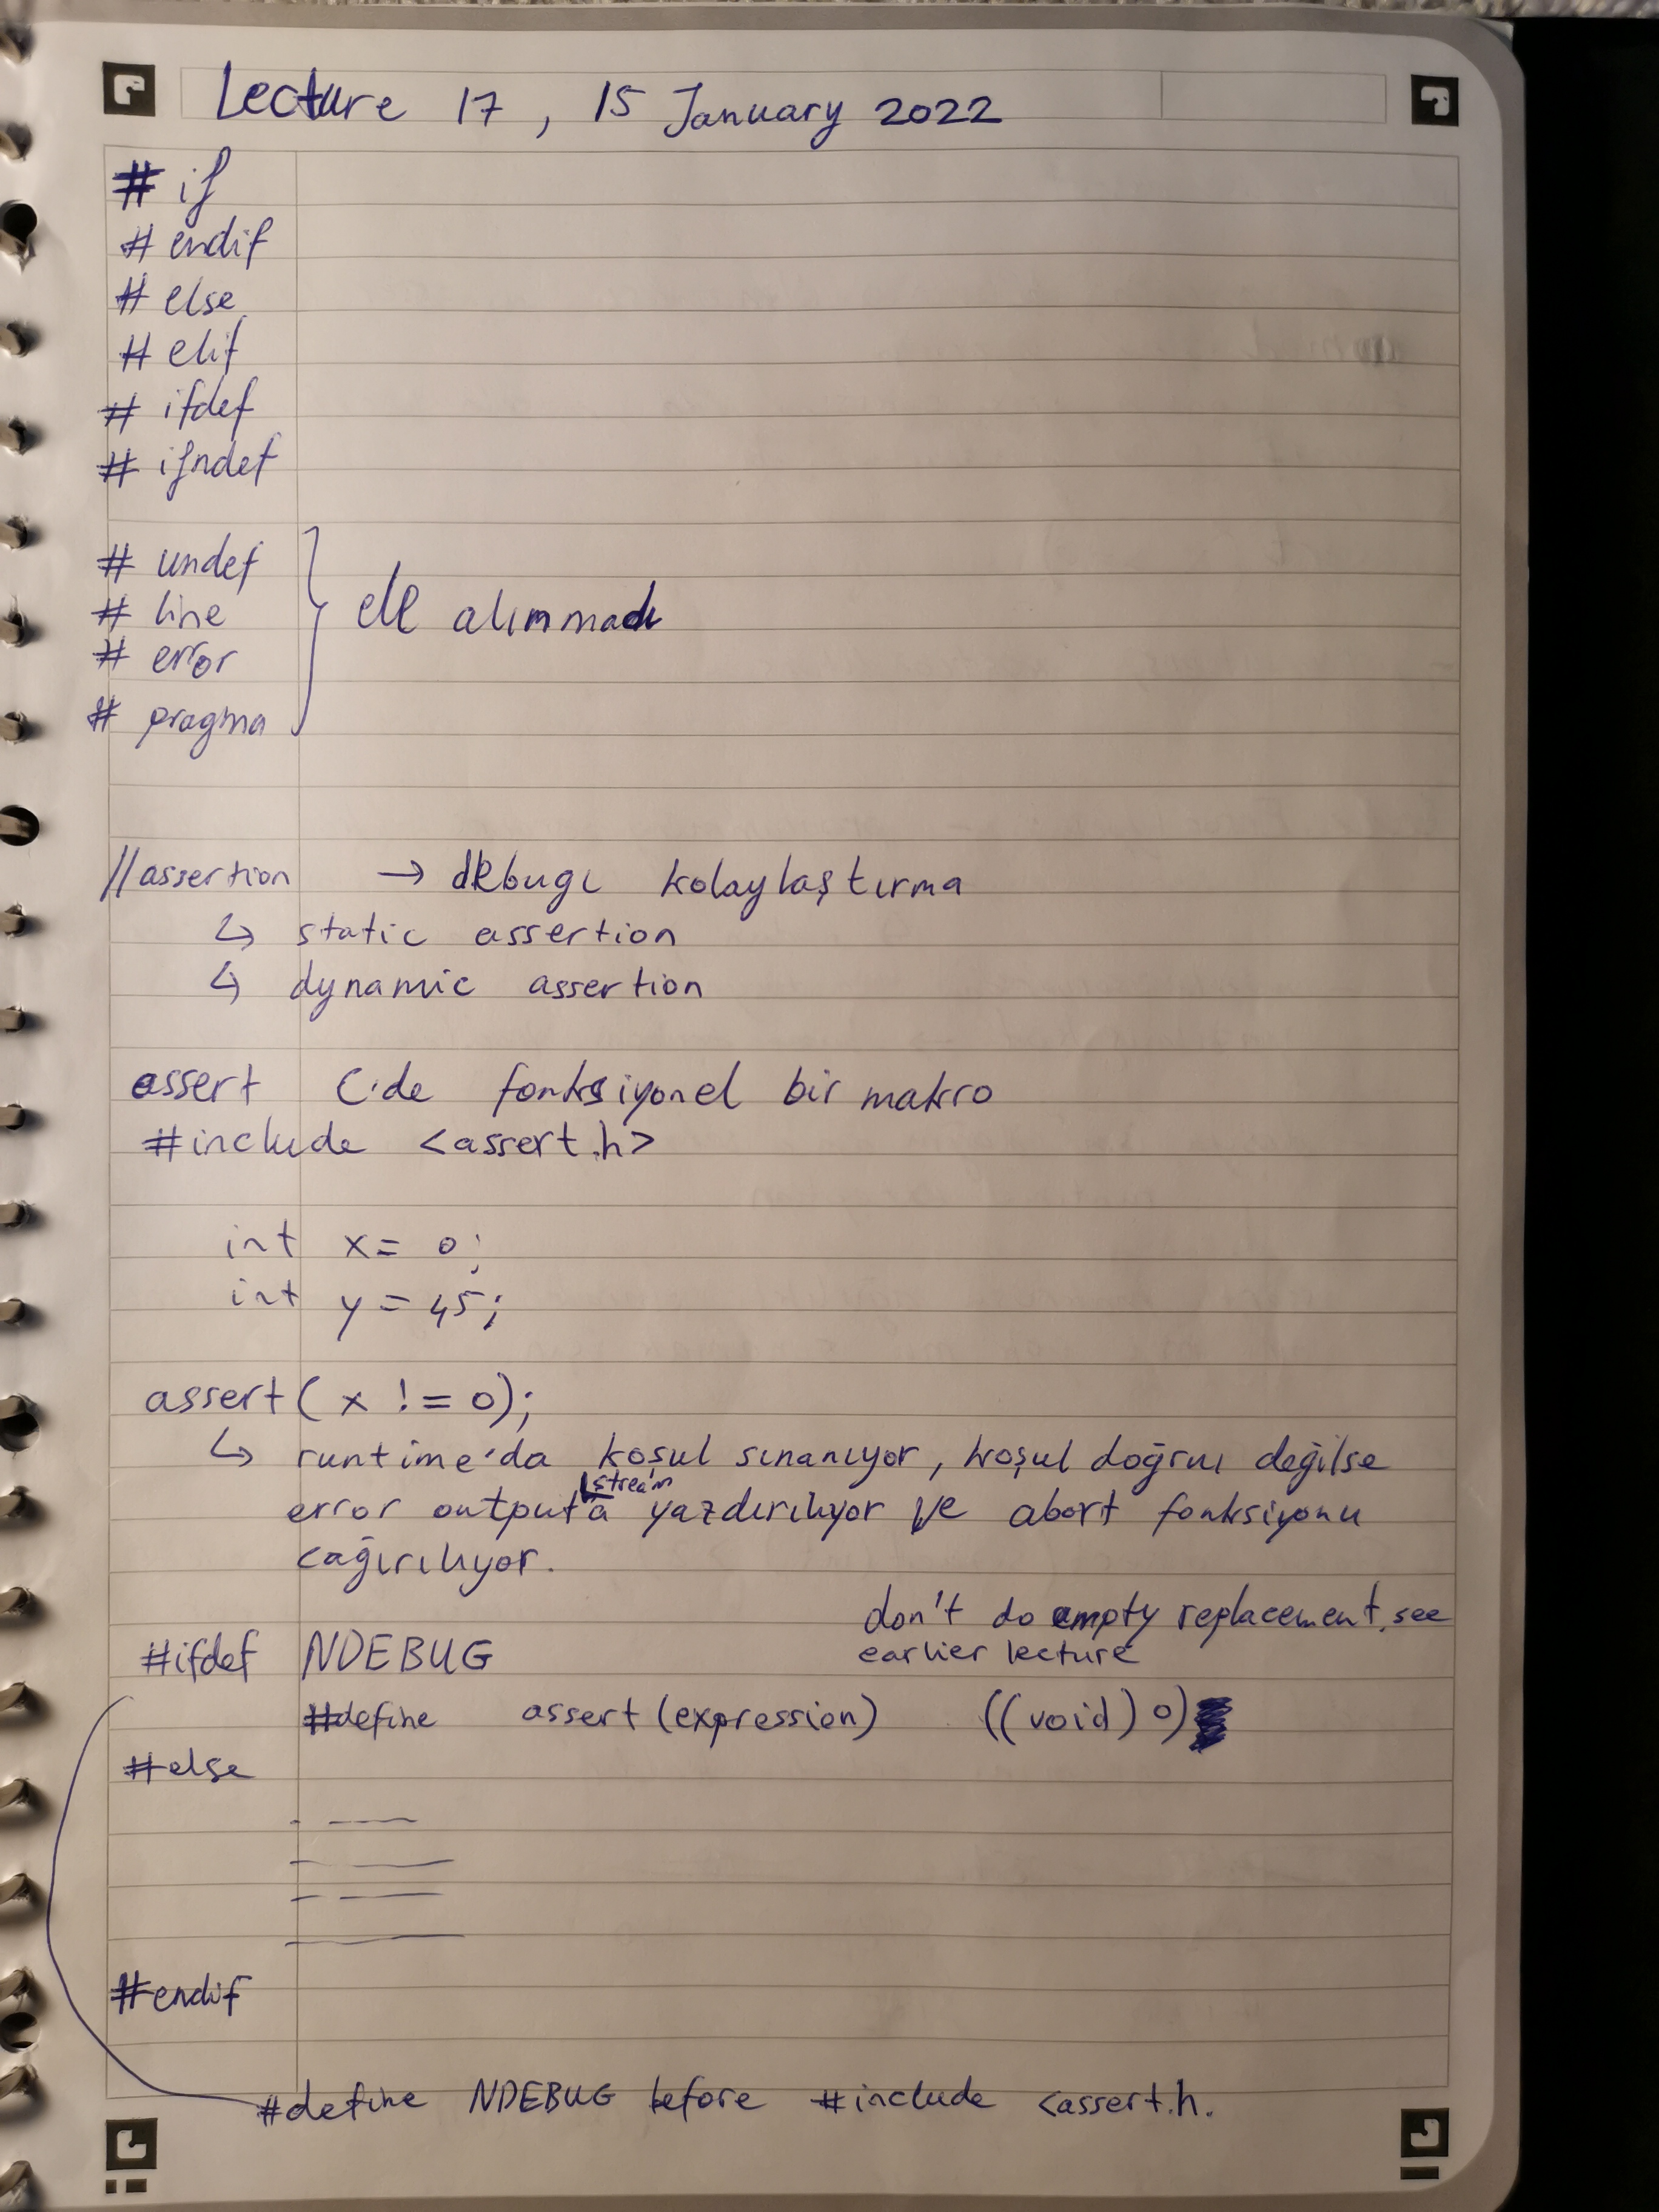 Lecture 17, 15 January 2022
# if
# endif
# else
# elif
# ifdef
# ifndef
# undef
# line
# error
# pragma
ele alınmadı
//assertion → debugı kolaylaştırma
↳ static assertion
↳ dynamic assertion
assert C'de fonksiyonel bir makro
#include <assert.h>
int x = 0;
int y = 45;
assert( x != 0);
↳ runtime'da koşul sınanıyor, koşul doğru değilse
stream
error output'a yazdırılıyor ve abort fonksiyonu
cağırılıyor.
don't do empty replacement, see
earlier lecture
#ifdef NDEBUG
#define assert(expression) ((void) 0)
#else
#endif
#define NDEBUG before #include <assert.h.